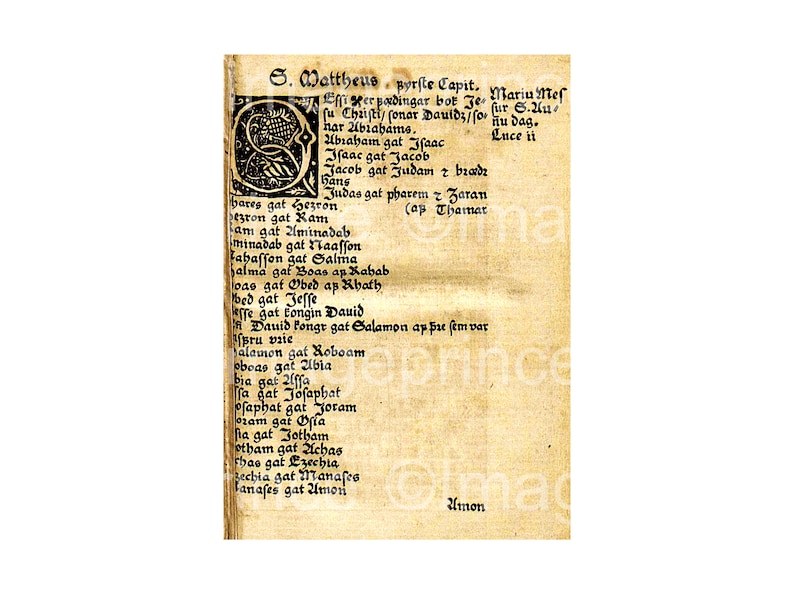 S. Mattheus. Fyrste Capit.
Essi er fædingar bok Je-
su Christi/ sonar Davidz/ so-
nar Abrahams.
Abraham gat Isaac
Isaac gat Jacob
Jacob gat Judam ⁊ brædr
hans
Judas gat pharem ⁊ Zaran
(af Thamar
hares gat Hezron
ezron gat Ram
am gat Aminadab
minadab gat Naasson
ahasson gat Salma
alma gat Boas af Rahab
oas gat Obed af Rhath
bed gat Jesse
esse gat kongin David
David kongr gat Salamon af þre sem var
vrie
alamon gat Roboam
oboas gat Abia
bia gat Assa
ssa gat Josaphat
osaphat gat Joram
oram gat Osia
sia gat Jotham
otham gat Achas
chas gat Ezechia
zechia gat Manases
anases gat Amon
Amon
Mariu Mes
sur S. An-
nu dag.
Luce ii
©Imageprince